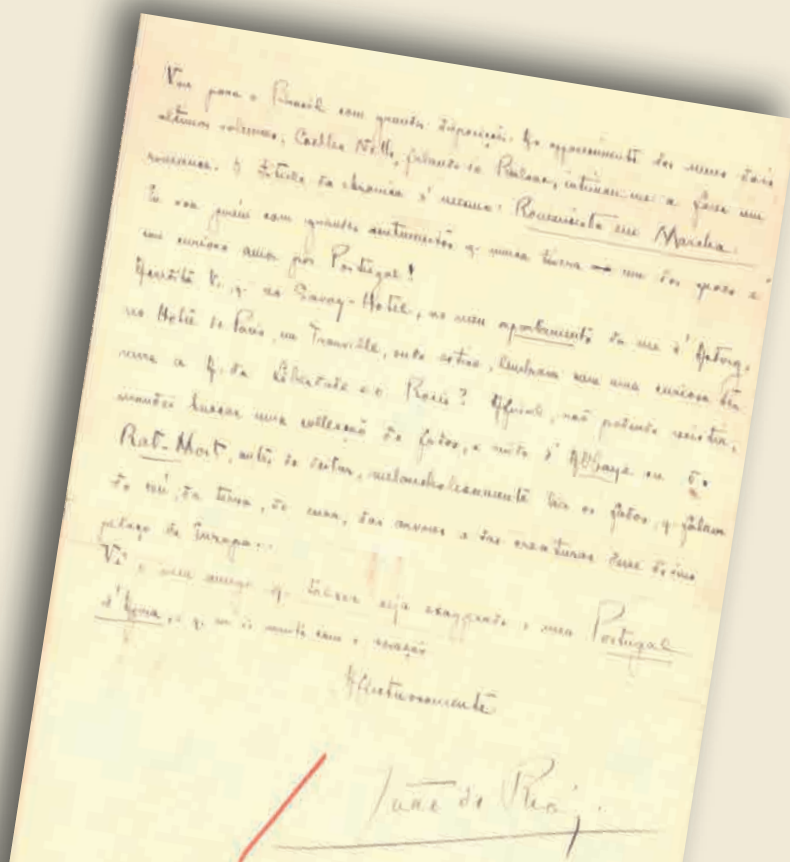 Vou para o Brasil com grande disposição. Ao apparecimento dos meus dois
ultimos volumes, Coelho Netto, falando da Paulona, intimou-me a fazer um
romance. O titulo da chronica é mesmo: Romancista em Marcha.
Eu vou porém com grandes sentimentos q. numa terra um dos quaes é
um curioso amor por Portugal!
Acredita V. q. no Savoy-Hotel, no meu apartamento da rua d'Astorg,
no Hotel de Paris, em Trouville, onde estive, lembram com uma curiosa
a A. da Liberdade e o Rocio? Afinal, não podendo resistir,
mandei buscar uma collecção de fados, e noite d'Abbaye ou do
Rat-Mort, antes de deitar, melancholicamente lia os fados, q. falam
do céu, da terra, do mar, das arvores e das creaturas desse divino
pedaço de Europa...
Vê o meu amigo q. talvez seja exaggerado o meu Portugal
d'Agora, q. é muito com o coração
Affectuosamente
João do Rio.